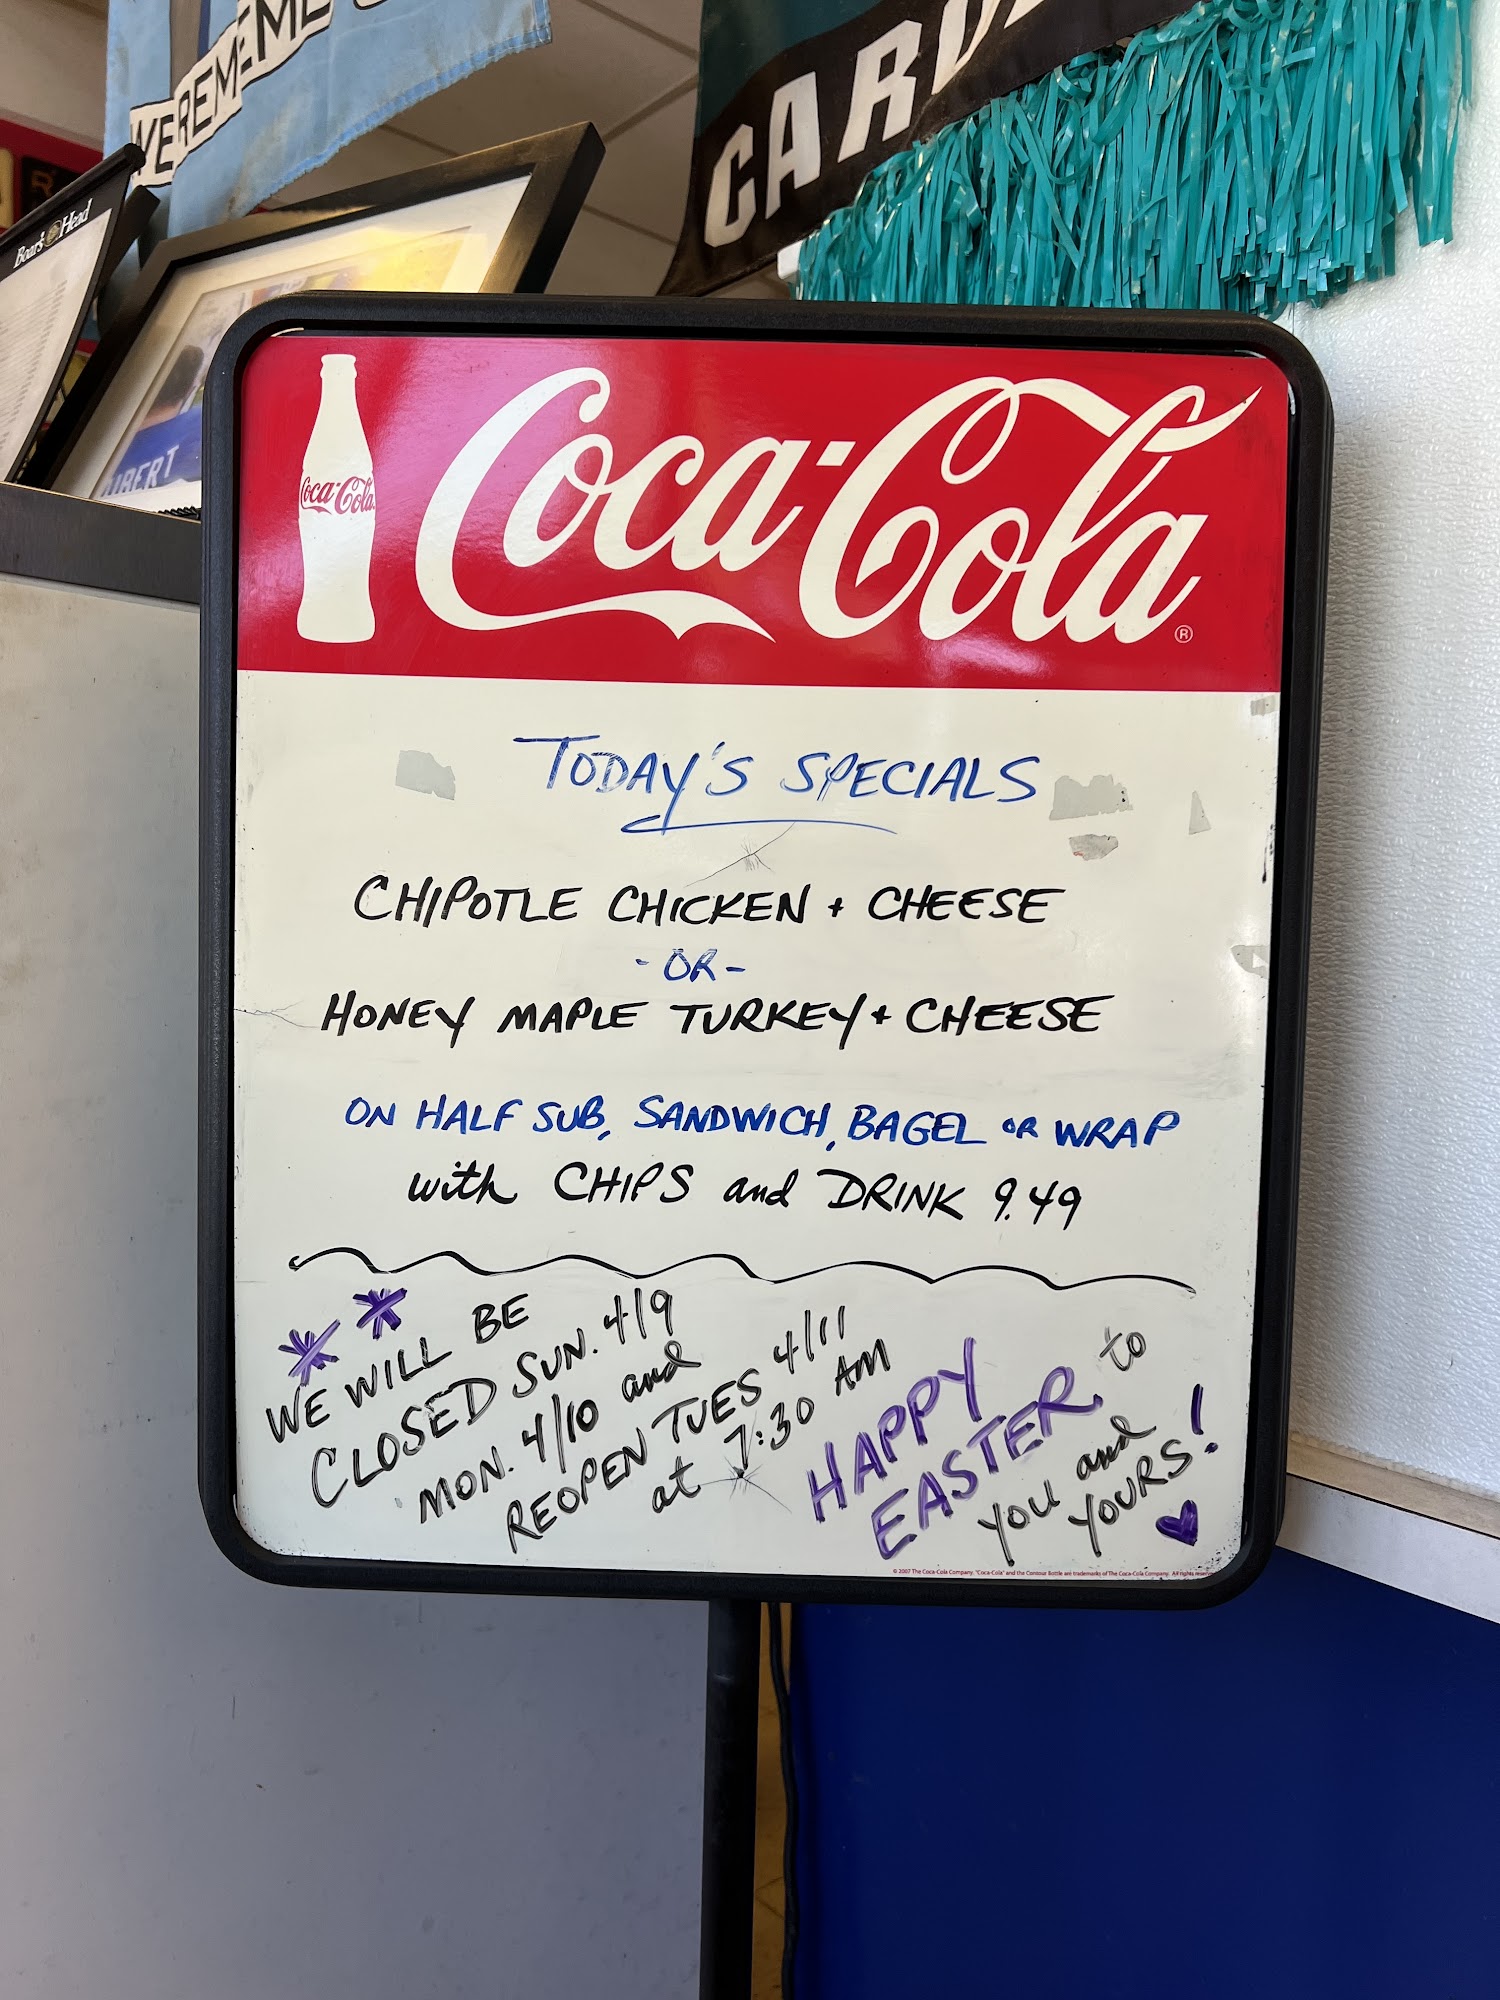 Boar's Head
CARD
Coca-Cola
Coca-Cola
®
TODAY'S SPECIALS
CHIPOTLE CHICKEN + CHEESE
- OR -
HONEY MAPLE TURKEY + CHEESE
ON HALF SUB, SANDWICH, BAGEL OR WRAP
with CHIPS and DRINK 9.49
** WE WILL BE
CLOSED SUN. 4/9
MON. 4/10 and
REOPEN TUES 4/11
at 7:30 AM
HAPPY
EASTER to
you and
YOURS!
© 2007 The Coca-Cola Company. "Coca-Cola" and the Contour Bottle are trademarks of The Coca-Cola Company. All rights reserv